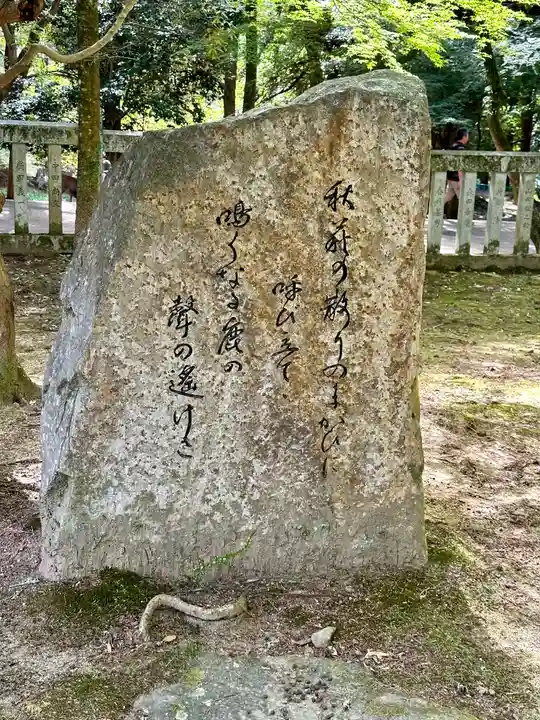 秋萩の散りのまがひに
呼び立てゝ
鳴くなる鹿の
聲の遙けさ